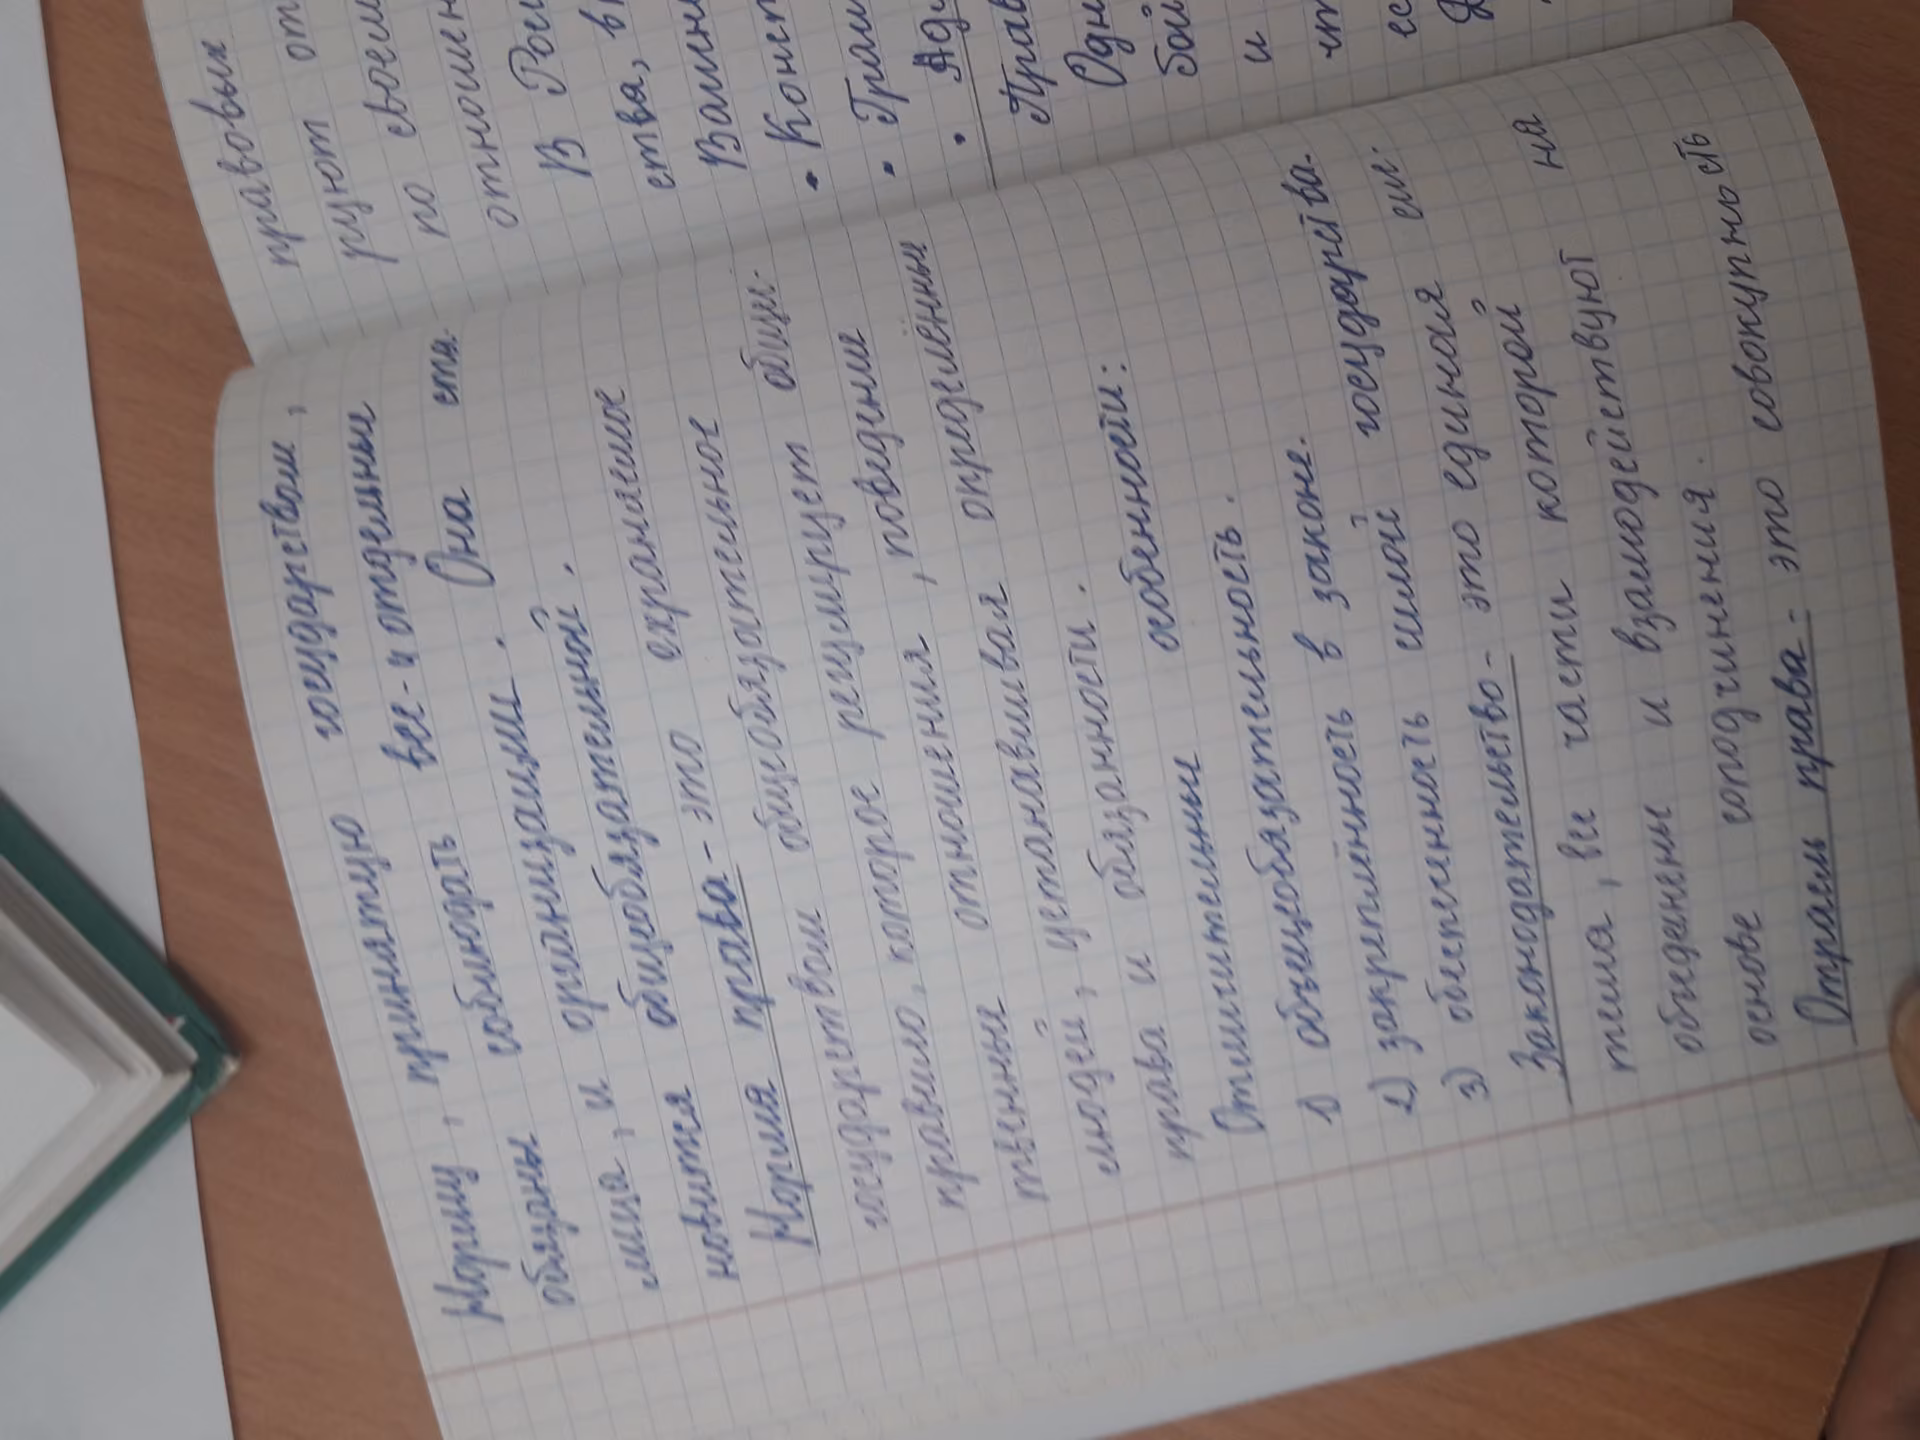 Норму, принятую государством,
обязаны соблюдать все - и отдельные
лица, и организации. Она ста-
новится общеобязательной.
Норма права - это охраняемое
государством общеобязательное
правило, которое регулирует общес-
твенные отношения, поведение
людей, устанавливая определённые
права и обязанности.
Отличительные особенности:
1) общеобязательность.
2) закреплённость в законе.
3) обеспеченность силой государства.
Законодательство - это единая сис-
тема, все части которой на
объединены и взаимодействуют
основе соподчинения.
Отрасль права - это совокупность
правовых от
руют
по своем
отношен
В Рос
ства, в
Важн
• Конст
• Граж
• Ад
Прав
Одн
бой
и
чт
ес